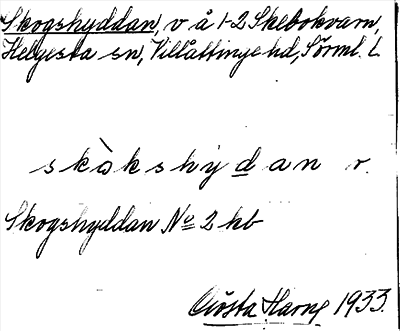 Skogshyddan, v å 1-2 Skebokvarn,
Helgesta sn, Villåttinge hd, Sörml. l.
skòkshỳdan v.
Skogshyddan No 2 kb
Gösta Harng 1933.